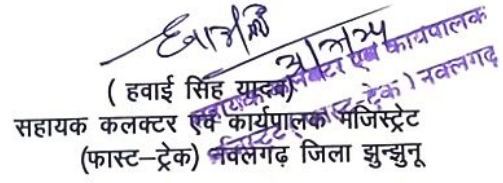 ( हवाई सिंह यादव)
सहायक कलक्टर एवं कार्यपालक मजिस्ट्रेट
(फास्ट–ट्रेक) नवलगढ़ जिला झुन्झुनू
कलेक्टर एवं कार्यपालक
मजिस्ट्रेट (फास्ट-ट्रेक) नवलगढ़